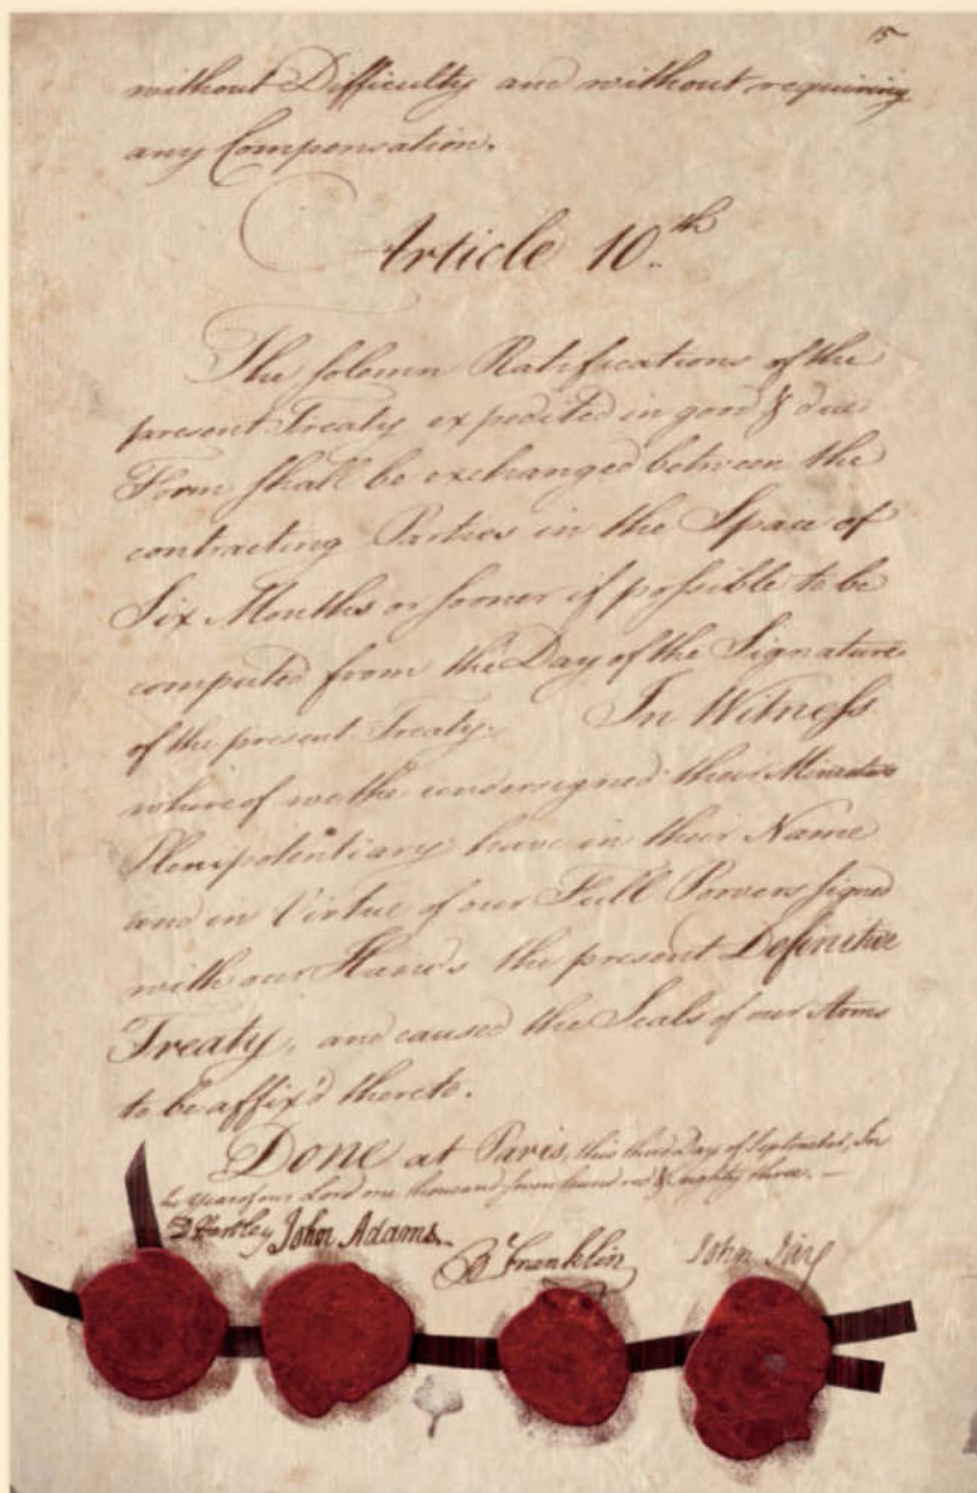 15
without Difficulty and without requiring
any Compensation.
Article 10.th
The solemn Ratifications of the
present Treaty expedited in good & due
Form shall be exchanged between the
contracting Parties in the Space of
Six Months or sooner if possible to be
computed from the Day of the Signature
of the present Treaty. In Witness
whereof we the undersigned their Ministers
Plenipotentiary have in their Name
and in Virtue of our Full Powers signed
with our Hands the present Definitive
Treaty, and caused the Seals of our Arms
to be affix'd thereto.
Done at Paris, this third Day of September, In
the Year of our Lord one thousand seven hundred & eighty three. —
D Hartley John Adams. B Franklin John Jay